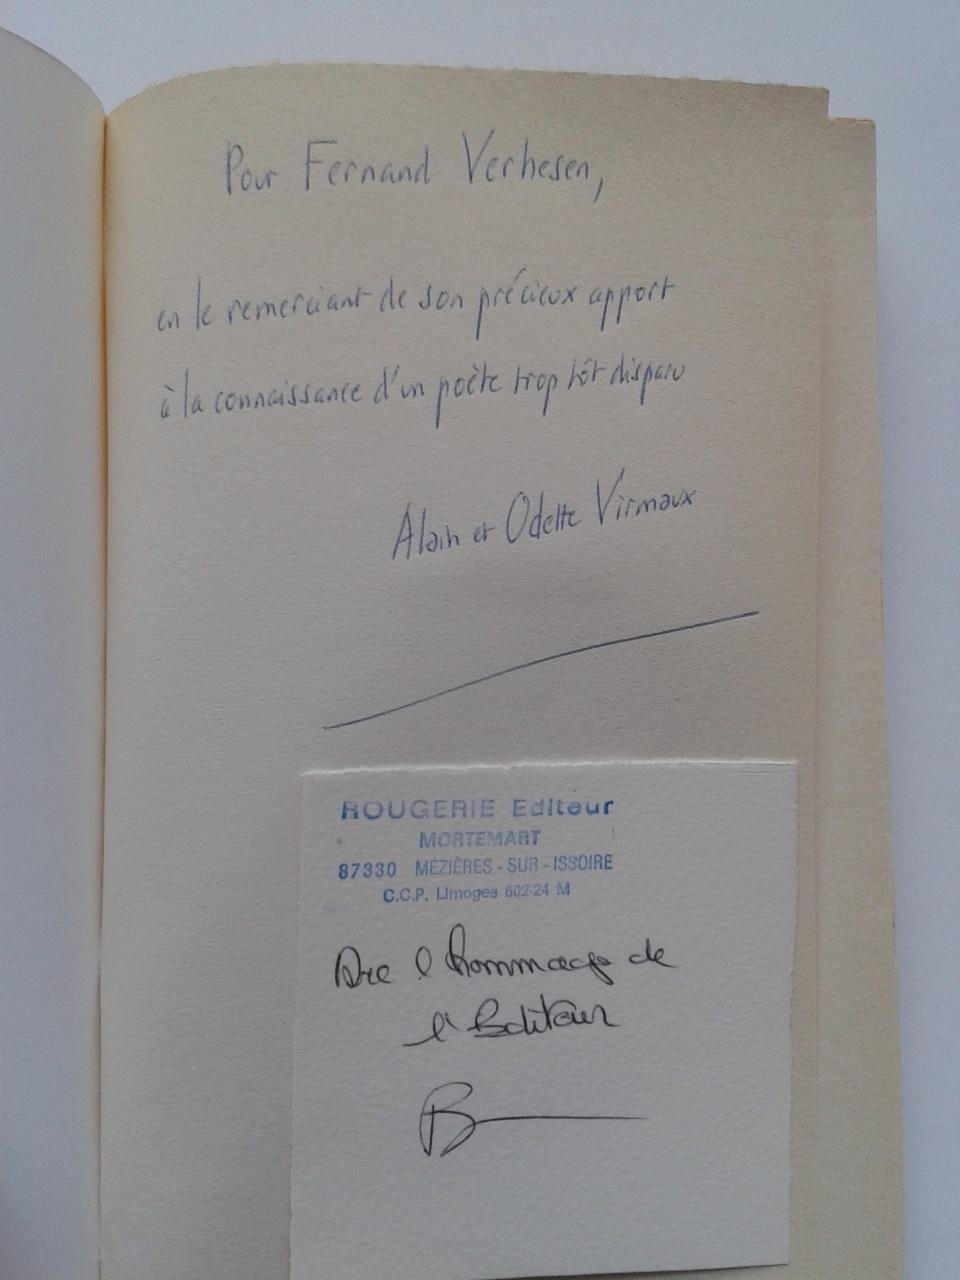 Pour Fernand Verhesen,
en le remerciant de son précieux apport
à la connaissance d'un poète trop tôt disparu
Alain et Odette Virmaux
ROUGERIE Editeur
MORTEMART
87330 MÉZIÈRES - SUR - ISSOIRE
C.C.P. Limoges 602-24 M
l'hommage de
l'Editeur